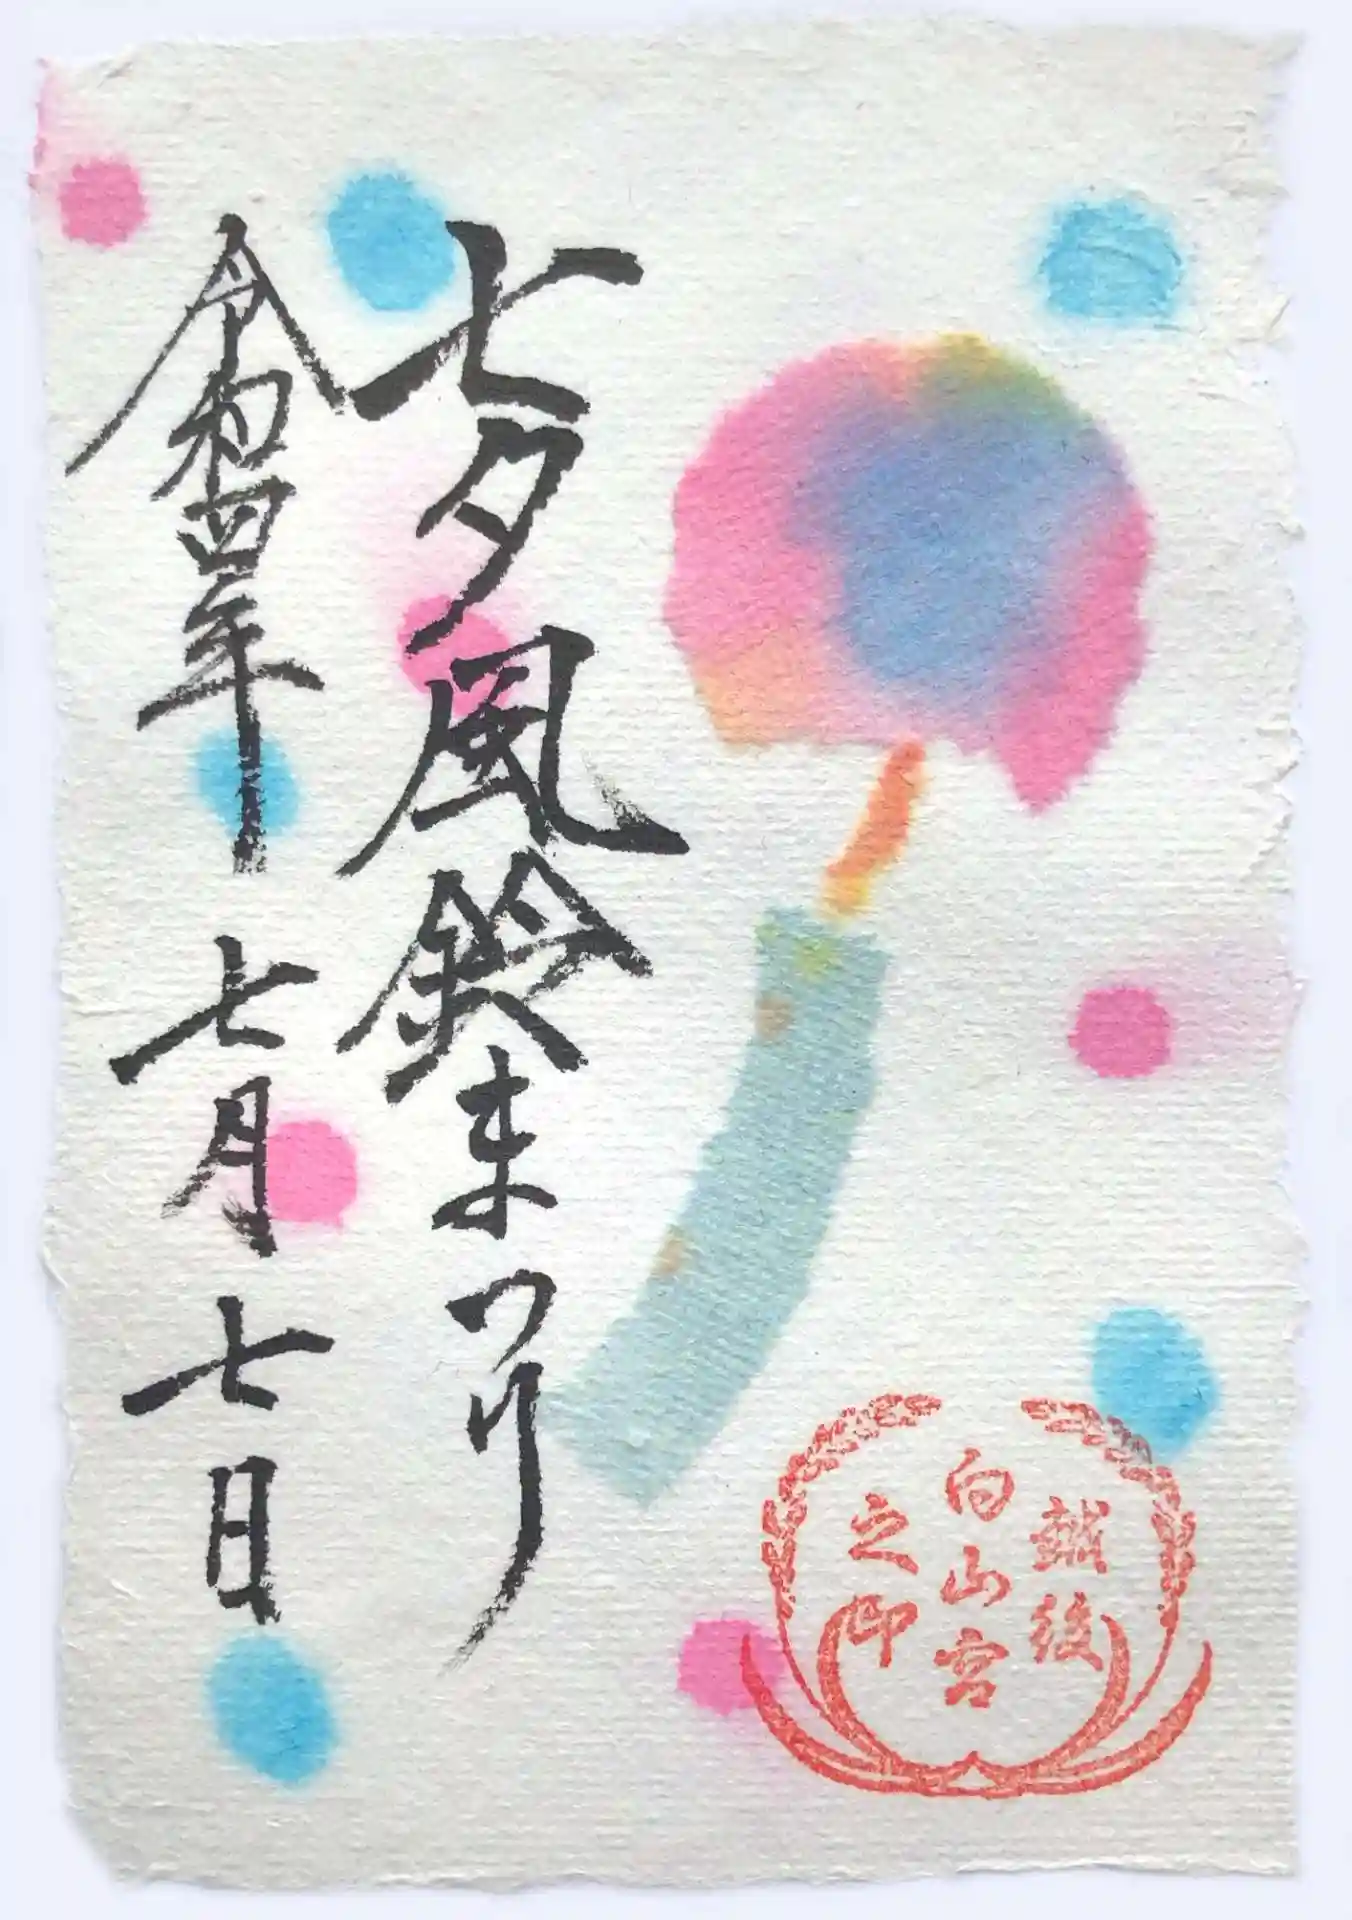 七夕風鈴まつり
令和四年 七月七日
越後
白山宮
之印